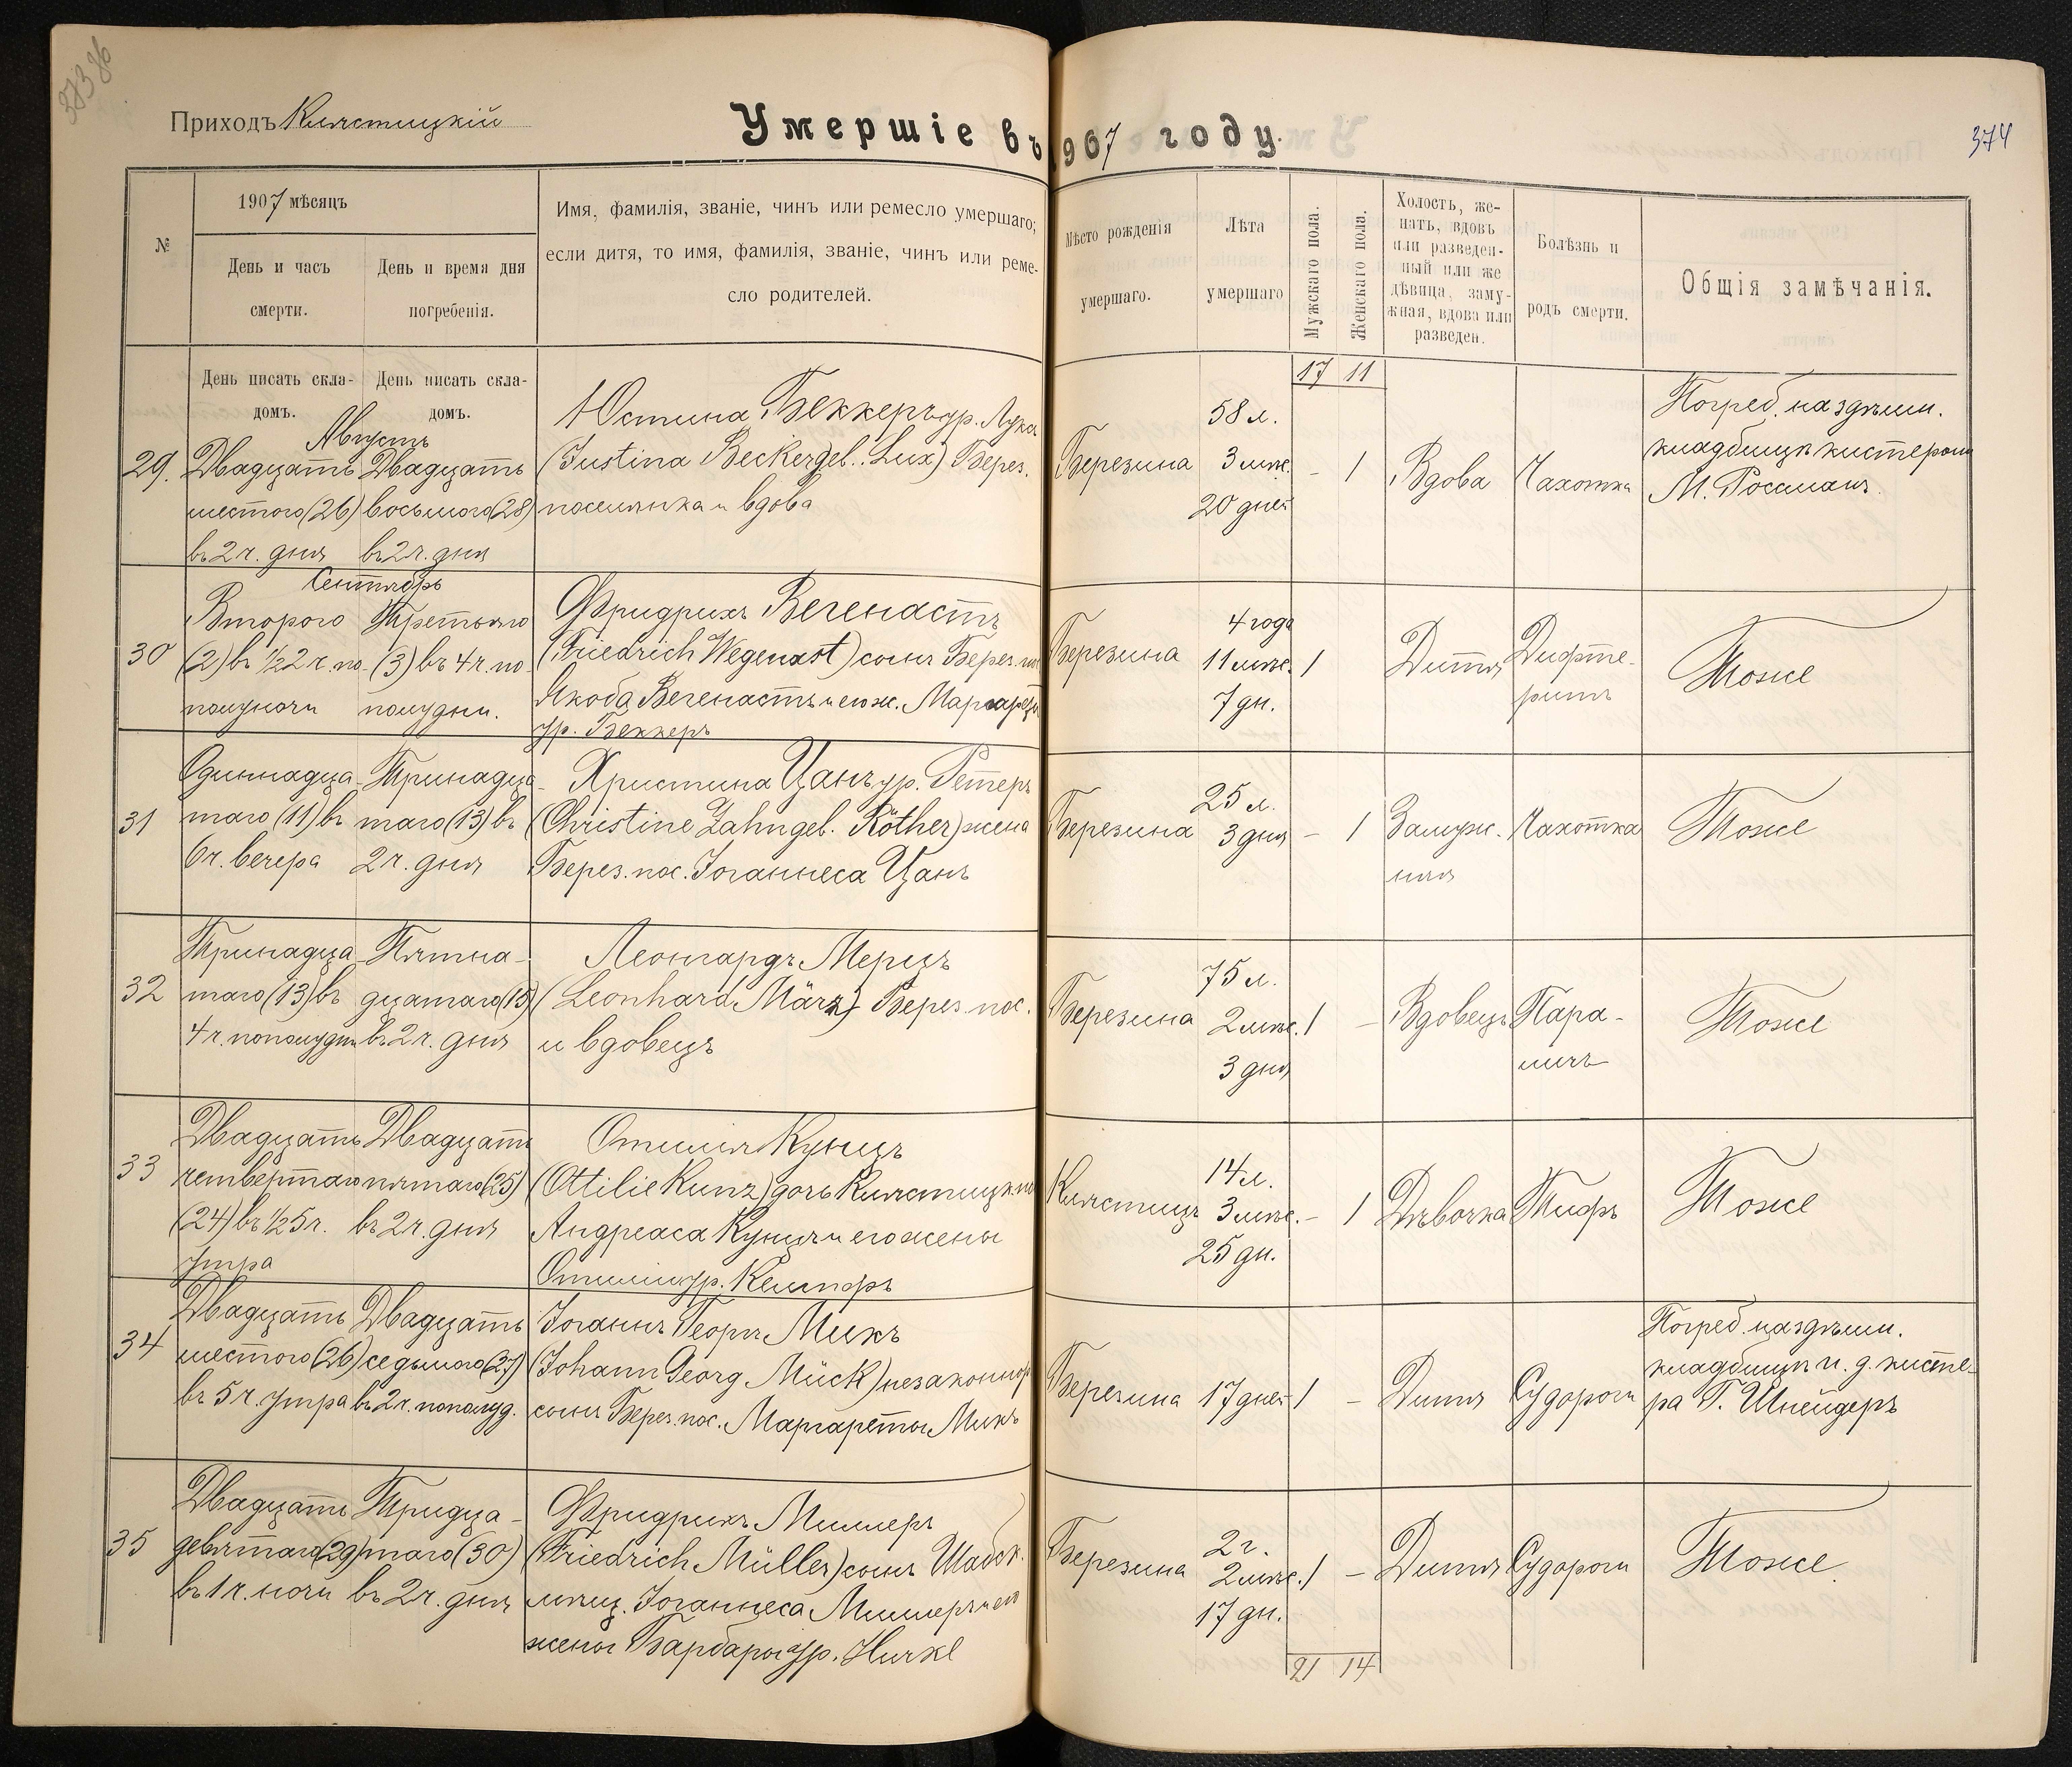 Приходъ Клястицкій
Умершіе въ 1907 году.
374
№
1907 мѣсяцъ
День и часъ
смерти.
День и время дня
погребенія.
Имя, фамилія, званіе, чинъ или ремесло умершаго;
если дитя, то имя, фамилія, званіе, чинъ или реме-
сло родителей.
Мѣсто рожденія
умершаго.
Лѣта
умершаго
Мужскаго пола.
Женскаго пола.
Холостъ, же-
натъ, вдовъ
или разведен-
ный или же
дѣвица, заму-
жняя, вдова или
разведен.
Болѣзнь и
родъ смерти.
Общія замѣчанія.
День писать скла-
домъ.
День писать скла-
домъ.
17 11
Августъ
29.
Двадцать
шестого (26)
въ 2 ч. дня
Двадцать
восьмого (28)
въ 2 ч. дня
Юстина Беккеръ ур. Лукс
(Justina Becker gel. Lux) Берез.
поселянка и вдова
Березина
58 л.
3 мѣс.
20 дней
- 1
Вдова
Чахотка
Погреб. на здѣшн.
кладбищѣ кистеромъ
М. Россманъ.
Сентябрь
30
Второго
(2) въ ½2 ч. по-
полуночи
Третьяго
(3) въ 4 ч. по-
полудни.
Фридрихъ Вегенастъ
(Friedrich Wegenast) сынъ Берез. пос.
Якоба Вегенастъ и его ж. Маргареты
ур. Беккеръ
Березина
4 года
11 мѣс.
7 дн.
1
Дитя
Дифте-
ритъ
Тоже
31
Одиннадца-
таго (11) въ
6 ч. вечера
Тринадца-
таго (13) въ
2 ч. дня
Христина Цанъ ур. Ретеръ
(Christine Zahn gel. Röther) жена
Берез. пос. Іоганнеса Цанъ
Березина
25 л.
3 дня
- 1
Замуж-
няя
Чахотка
Тоже
32
Тринадца-
таго (13) въ
4 ч. пополудни
Пятна-
дцатаго (15)
въ 2 ч. дня
Леонгардъ Мерцъ
(Leonhard März) Берез. пос.
и вдовецъ
Березина
75 л.
2 мѣс.
3 дня
1 -
Вдовецъ
Пара-
личъ
Тоже
33
Двадцать
четвертаго
(24) въ ½5 ч.
утра
Двадцать
пятаго (25)
въ 2 ч. дня
Отилія Кунцъ
(Ottilie Kunz) дочь Клястицк. пос.
Андреаса Кунцъ и его жены
Отиліи ур. Кемпфъ
Клястицъ
14 л.
3 мѣс.
25 дн.
- 1
Дѣвочка
Тифъ
Тоже
34
Двадцать
шестого (26)
въ 5 ч. утра
Двадцать
седьмого (27)
въ 2 ч. пополуд.
Іоганнъ Георгъ Микъ
(Johann Georg Mück) незаконнор.
сынъ Берез. пос. Маргареты Микъ
Березина
17 дней
1 -
Дитя
Судороги
Погреб. на здѣшн.
кладбищѣ и. д. кисте-
ра Г. Шнейдеръ
35
Двадцать
девятаго (29)
въ 1 ч. ночи
Тридца-
таго (30)
въ 2 ч. дня
Фридрихъ Миллеръ
(Friedrich Müller) сынъ Шабск.
мѣщ. Іоганнеса Миллеръ и его
жены Барбары ур.
Березина
2 г.
2 мѣс.
17 дн.
1 -
Дитя
Судороги
Тоже
21 14